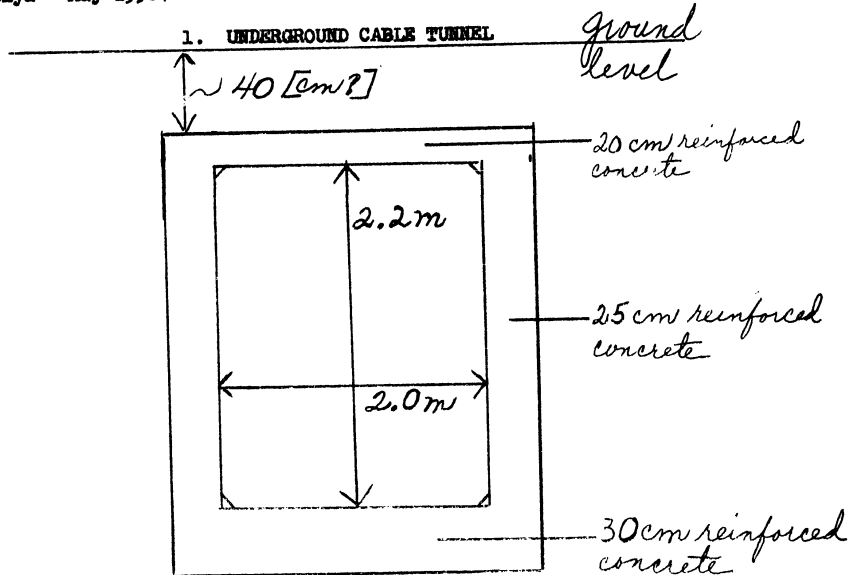 1. UNDERGROUND CABLE TUNNEL
ground
level
~ 40 [cm?]
20 cm reinforced
concrete
2.2m
25 cm reinforced
concrete
2.0m
30 cm reinforced
concrete